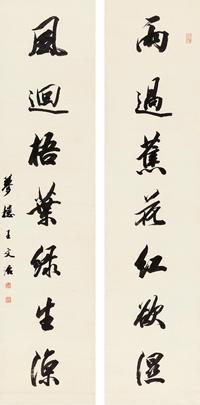 雨過蕉花紅欲濕
風迴梧葉綠生涼
夢樓王文治